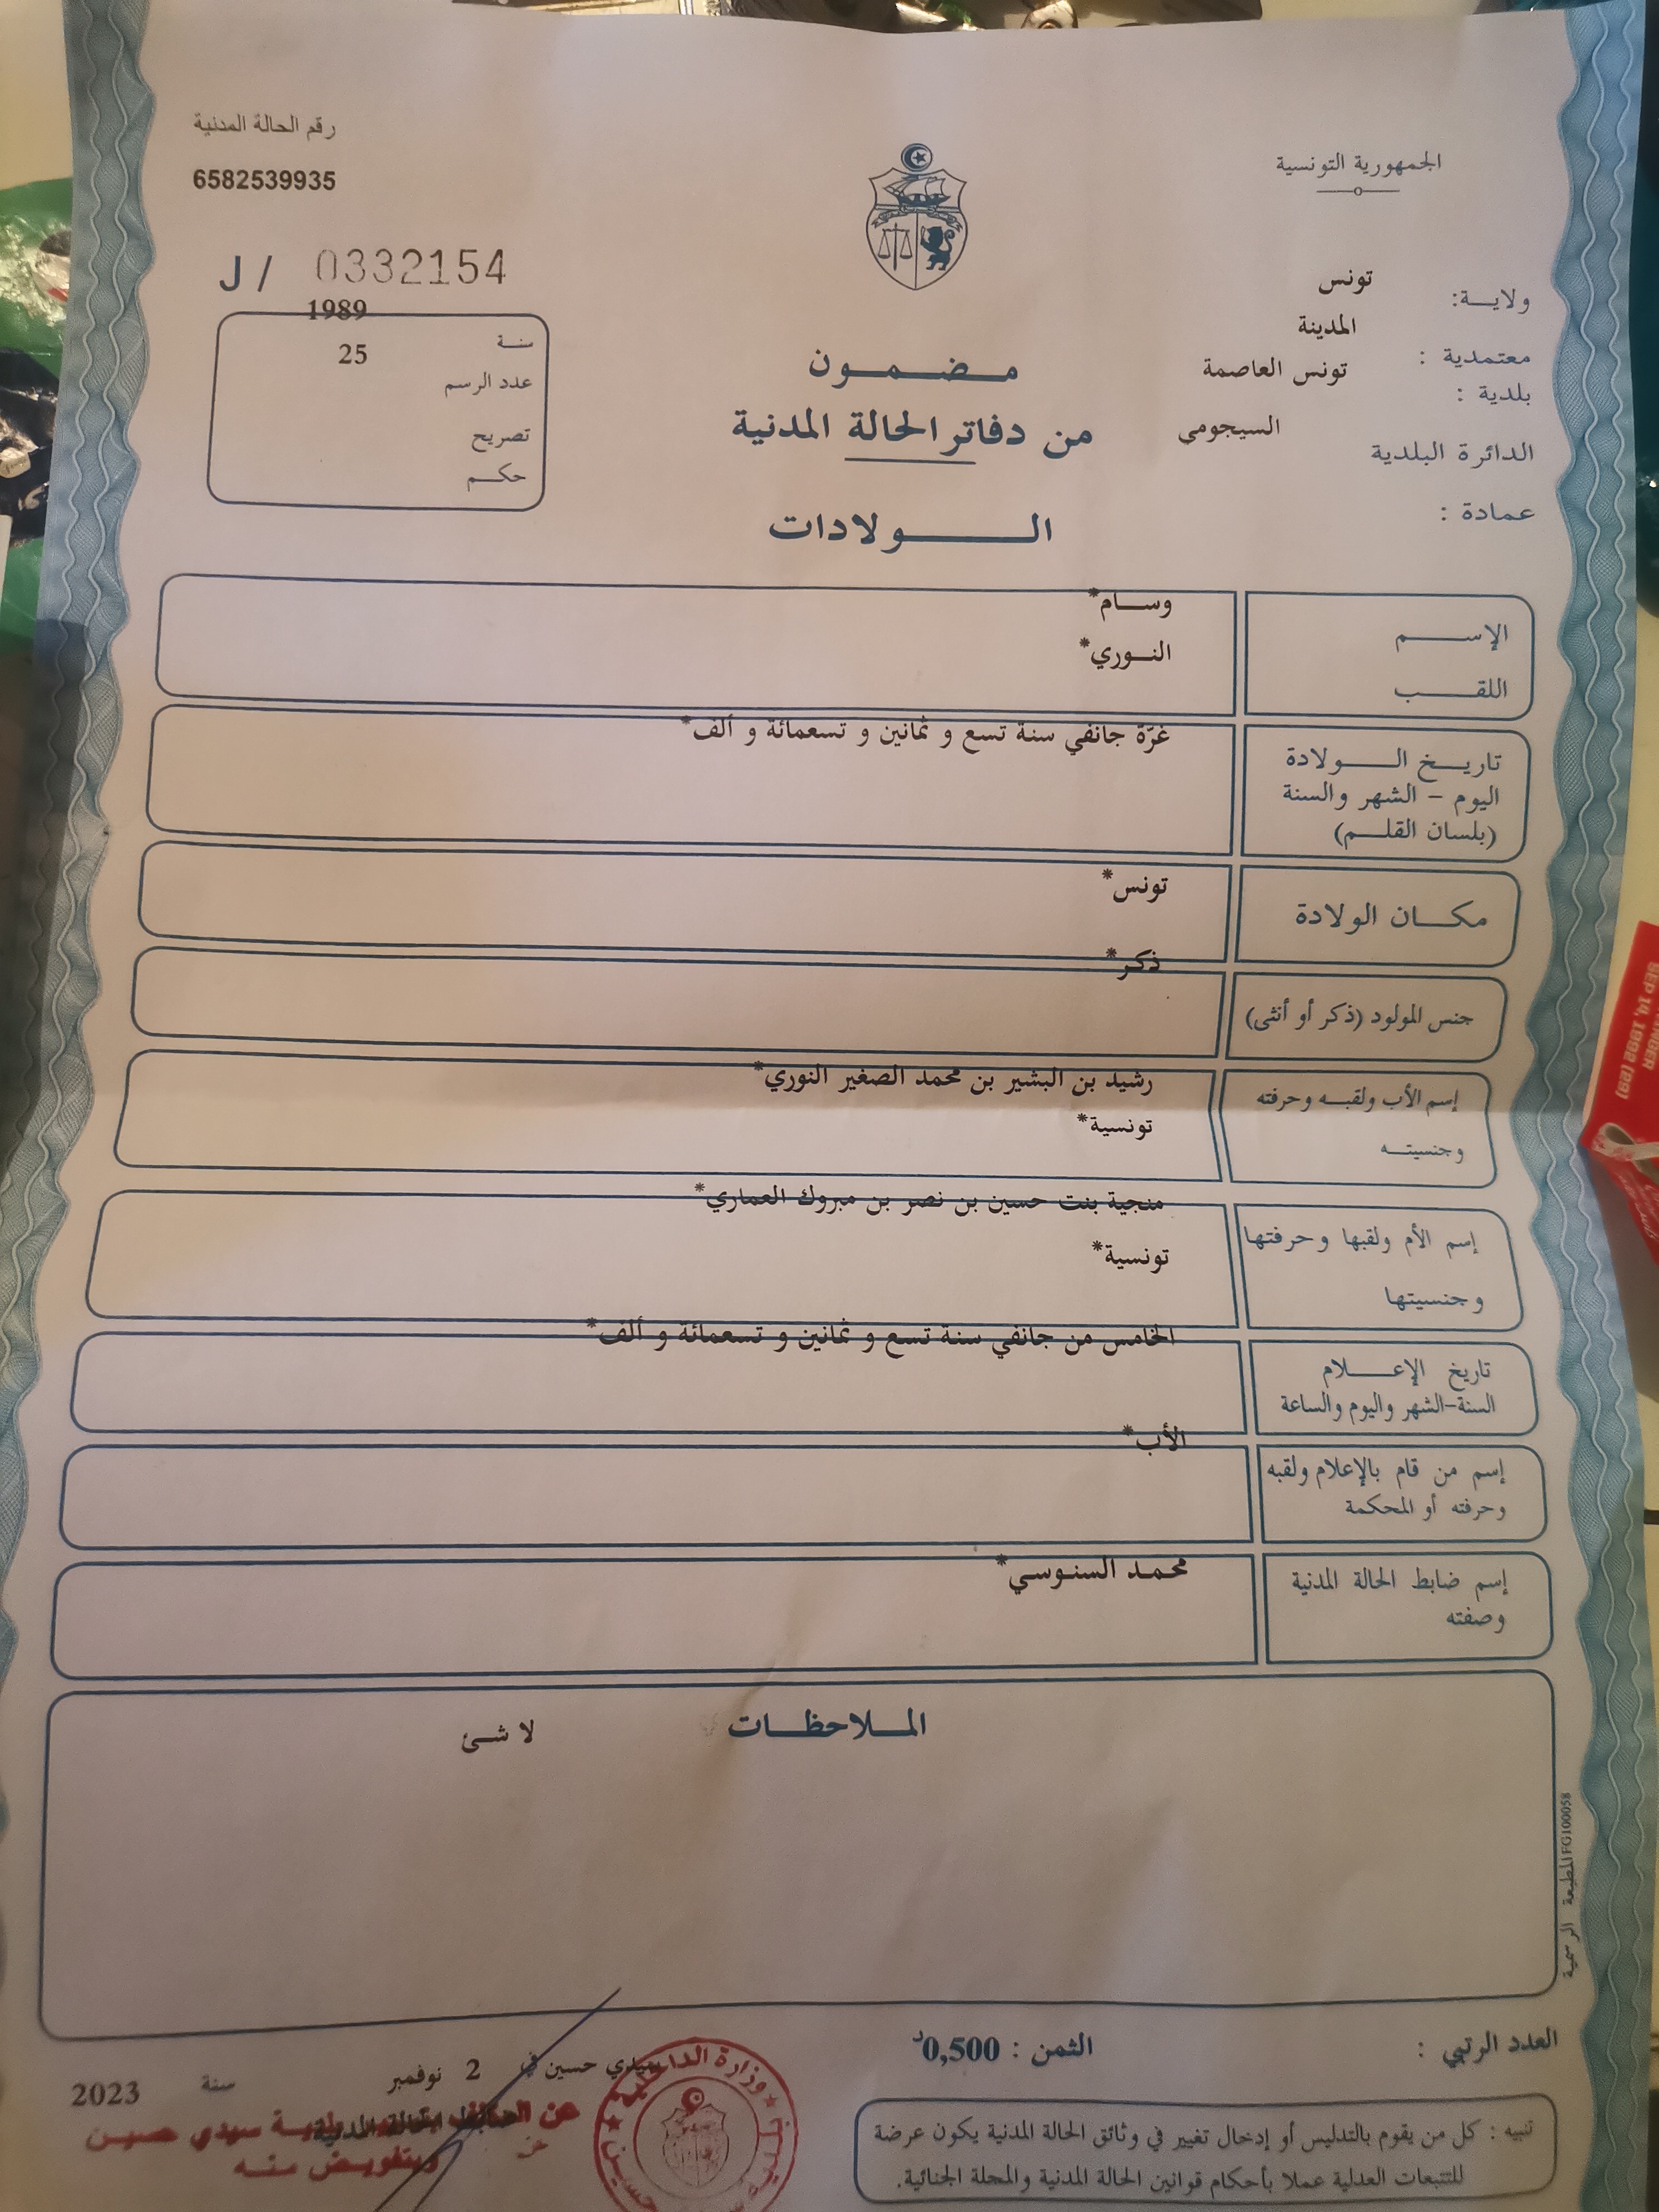 الجمهورية التونسية
ولاية: تونس
معتمدية : المدينة
بلدية : تونس العاصمة
الدائرة البلدية السيجومي
عمادة :
رقم الحالة المدنية
6582539935
J / 0332154
سنة 1989
عدد الرسم 25
تصريح
حكم
مضمون
من دفاتر الحالة المدنية
الولادات
الإسم وسام*
اللقب النوري*
تاريخ الولادة
اليوم - الشهر والسنة
(بلسان القلم)
غرّة جانفي سنة تسع و ثمانين و تسعمائة و ألف*
مكان الولادة تونس*
جنس المولود (ذكر أو أنثى) ذكر*
إسم الأب ولقبه وحرفته رشيد بن البشير بن محمد الصغير النوري*
وجنسيته تونسية*
إسم الأم ولقبها وحرفتها منجية بنت حسين بن نصر بن مبروك العماري*
وجنسيتها تونسية*
تاريخ الإعلام
السنة-الشهر واليوم والساعة
الخامس من جانفي سنة تسع و ثمانين و تسعمائة و ألف*
إسم من قام بالإعلام ولقبه
وحرفته أو المحكمة
الأب*
إسم ضابط الحالة المدنية
وصفته
محمد السنوسي*
الملاحظات
لا شئ
المطبعة الرسمية FG100058
العدد الرتبي :
الثمن : 0,500د
سيدي حسين في 2 نوفمبر سنة 2023
ضابط الحالة المدنية
بلدية سيدي حسين
وبتفويض منه
وزارة الداخلية
تنبيه : كل من يقوم بالتدليس أو إدخال تغيير في وثائق الحالة المدنية يكون عرضة
للتتبعات العدلية عملا بأحكام قوانين الحالة المدنية والمجلة الجنائية.
SEP 14, 1992 (29)